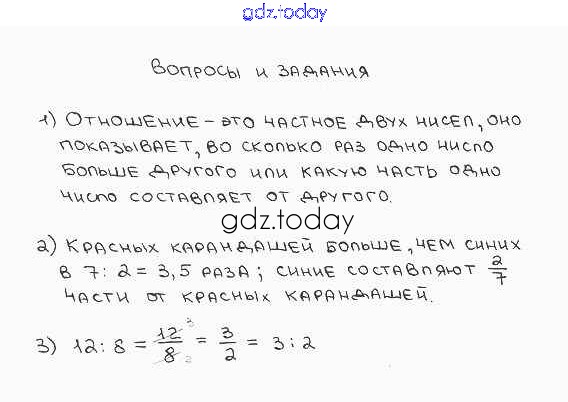 gdz.today
Вопросы и задания
1) Отношение – это частное двух чисел, оно
показывает, во сколько раз одно число
больше другого или какую часть одно
число составляет от другого.
gdz.today
2) Красных карандашей больше, чем синих
в 7 : 2 = 3,5 раза ; синие составляют 2/7
части от красных карандашей.
3) 12 : 8 = 12 3/8 2 = 3/2 = 3 : 2